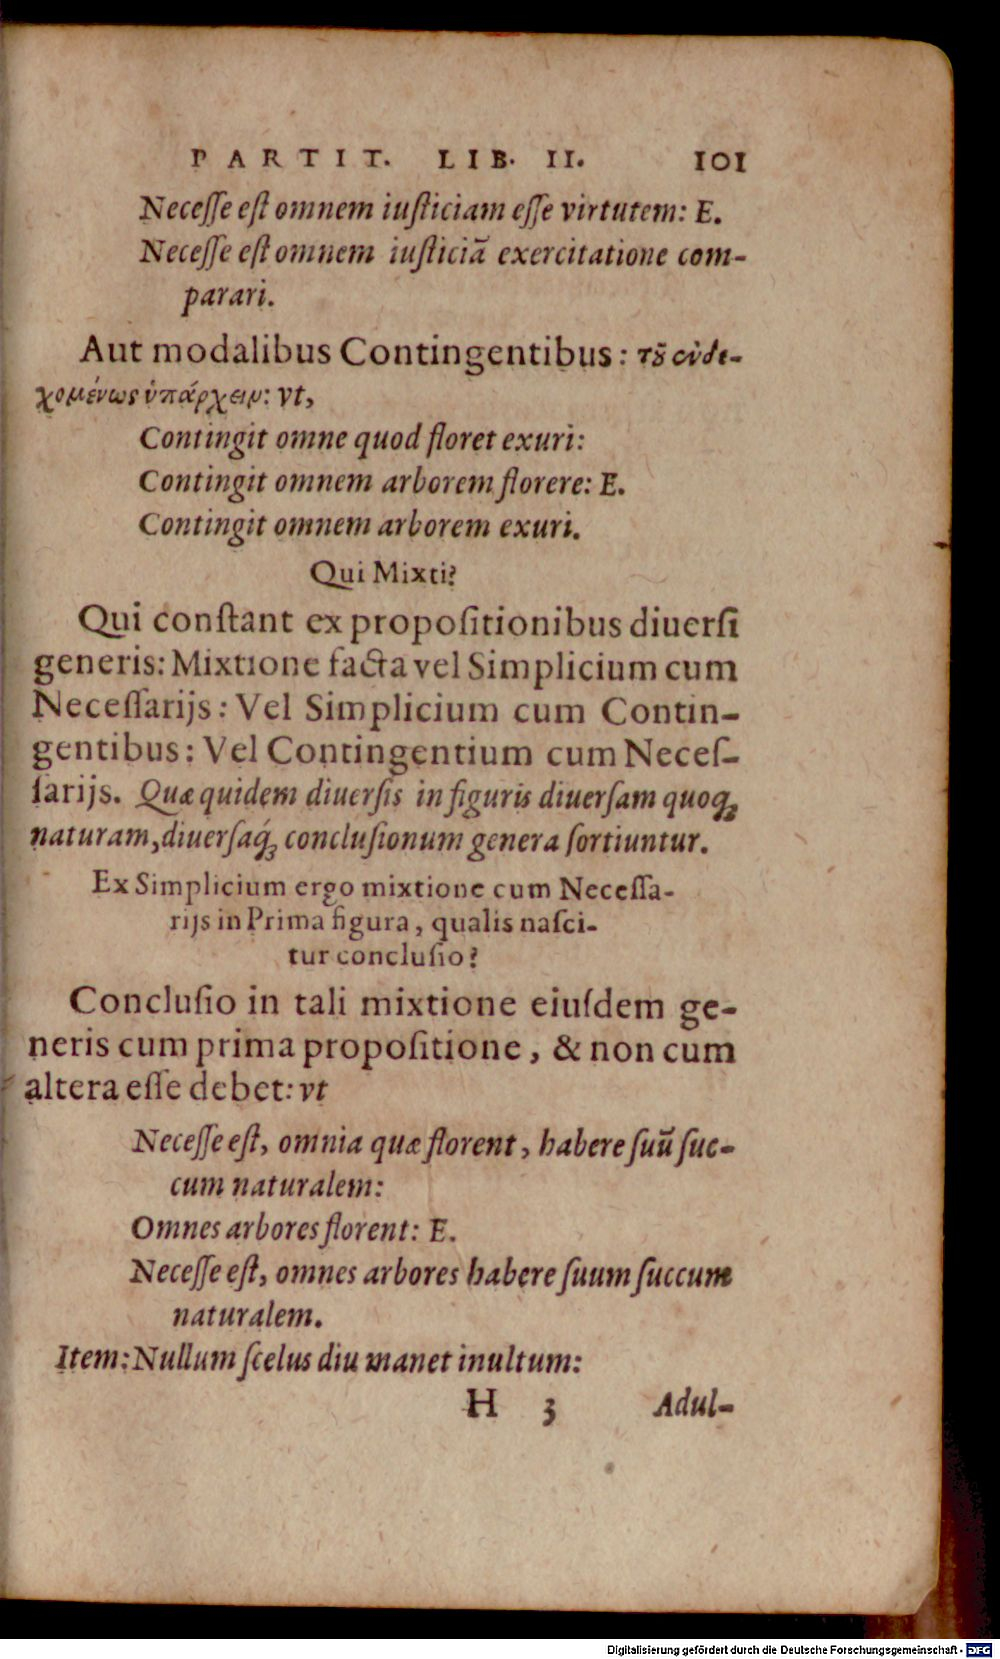 PARTIT. LIB. II. 101
Necesse est omnem iusticiam esse virtutem: E.
Necesse est omnem iusticiā exercitatione com-
parari.
Aut modalibus Contingentibus: τȣ͂ ἐνδε-
χομένως ὑπάρχειν: vt,
Contingit omne quod floret exuri:
Contingit omnem arborem florere: E.
Contingit omnem arborem exuri.
Qui Mixti?
Qui constant ex propositionibus diuersi
generis: Mixtione facta vel Simplicium cum
Necessarijs: Vel Simplicium cum Contin-
gentibus: Vel Contingentium cum Neces-
sarijs. Quæ quidem diuersis in figuris diuersam quoq;
naturam, diuersaq́; conclusionum genera sortiuntur.
Ex Simplicium ergo mixtione cum Necessa-
rijs in Prima figura, qualis nasci-
tur conclusio?
Conclusio in tali mixtione eiusdem ge-
neris cum prima propositione, & non cum
altera esse debet: vt
Necesse est, omnia quæ florent, habere suū suc-
cum naturalem:
Omnes arbores florent: E.
Necesse est, omnes arbores habere suum succum
naturalem.
Item: Nullum scelus diu manet inultum:
H 3 Adul-
Digitalisierung gefördert durch die Deutsche Forschungsgemeinschaft - DFG